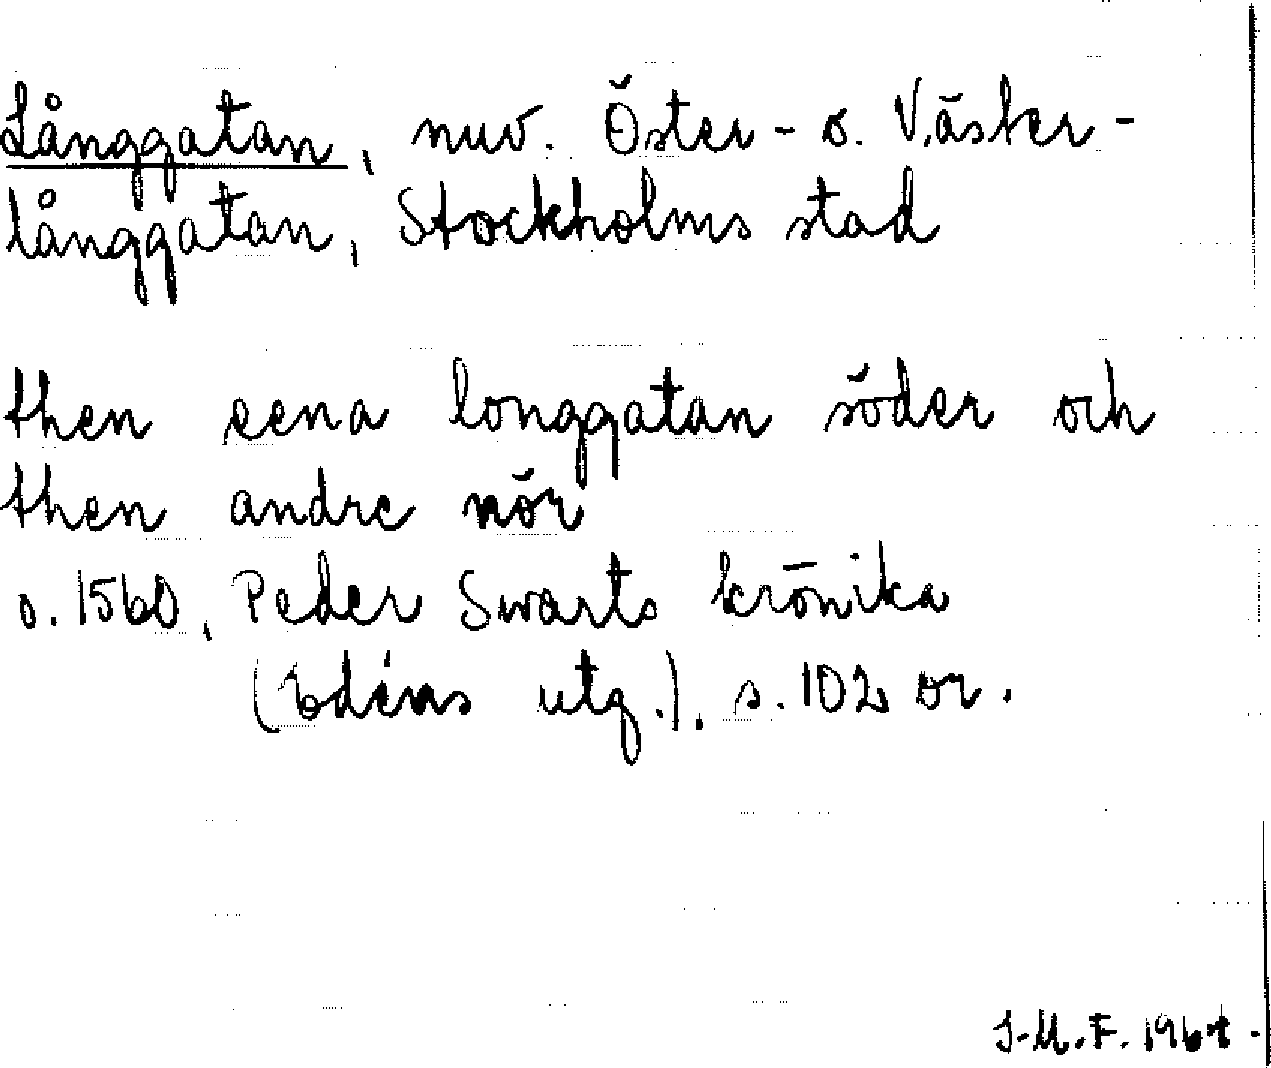 Långgatan, nuv. Öster- o. Väster-
långgatan, Stockholms stad
then eena longgatan söder och
then andre nör
o. 1560, Peder Swarts krönika
(Edéns utg.), s. 102 or.
J-M.F. 1964.